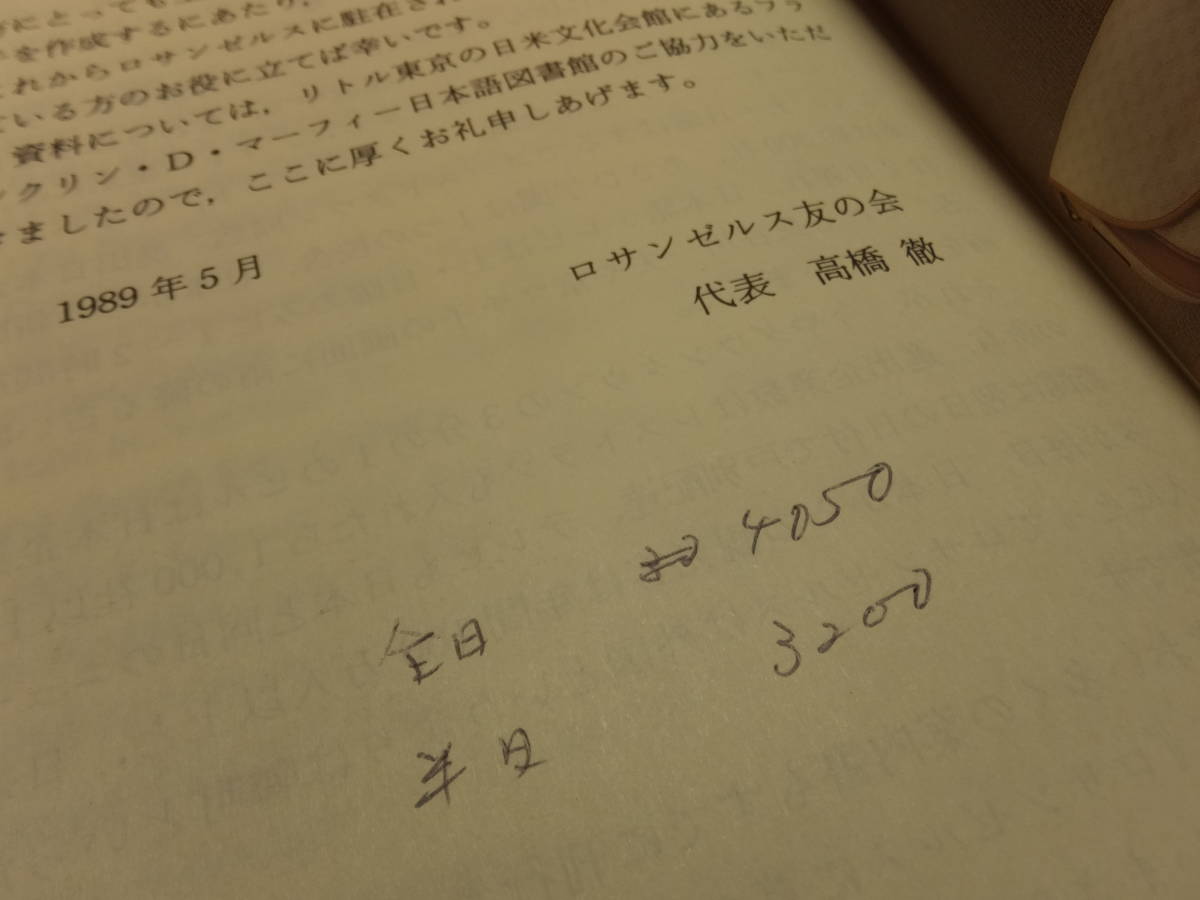 にとっても
を作成するにあたり,
れからロサンゼルスに駐在され
いる方のお役に立てば幸いです。
資料については, リトル東京の日米文化会館にあるフラ
ンクリン・D・マーフィー日本語図書館のご協力をいただ
きましたので, ここに厚くお礼申しあげます。
1989年5月
ロサンゼルス友の会
代表 高橋 徹
全日 4050
半日 3200